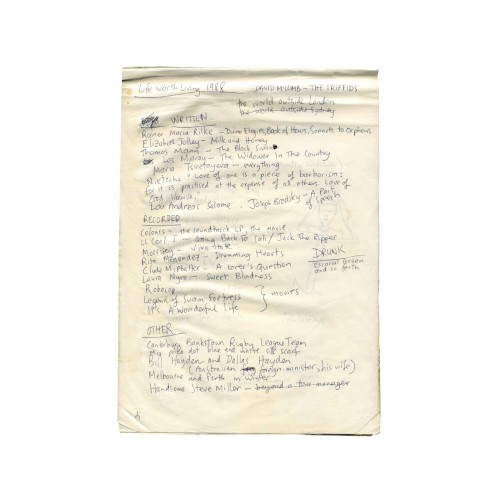 Life Worth Living 1988 DAVID McCOMB – THE TRIFFIDS
the world outside London
the world outside Sydney
WRITTEN
Rainer Maria Rilke – Duino Elegies, Book of Hours, Sonnets to Orpheus
Elizabeth Jolley – Milk and Honey
Thomas Mann – The Black Swan
Les Murray – The Widower In The Country
Maria Tsvetayeva – everything
Nietzsche "Love of one is a piece of barbarism:
for it is practised at the expense of all others. Love of
God likewise."
Lou Andreas Salome. Joseph Brodsky – A Part
of Speech
RECORDED
Colours – the soundtrack LP, the movie
LL Cool J – Going Back To Cali / Jack The Ripper
Morrissey – Viva Hate
Rita Menendez – Drumming Hearts
Clyde McPhatter – A Lover's Question
Laura Nyro – Sweet Blindness
DRUNK
and so forth
Robocop
Legend of Suram Fortress } movies
It's A Wonderful Life
OTHER
Canterbury Bankstown Rugby League Team
My polka dot blue and white silk scarf
Bill Hayden and Dallas Hayden
(Australian foreign minister, his wife)
Melbourne and Perth in Winter
Handsome Steve Miller – beyond a tour manager